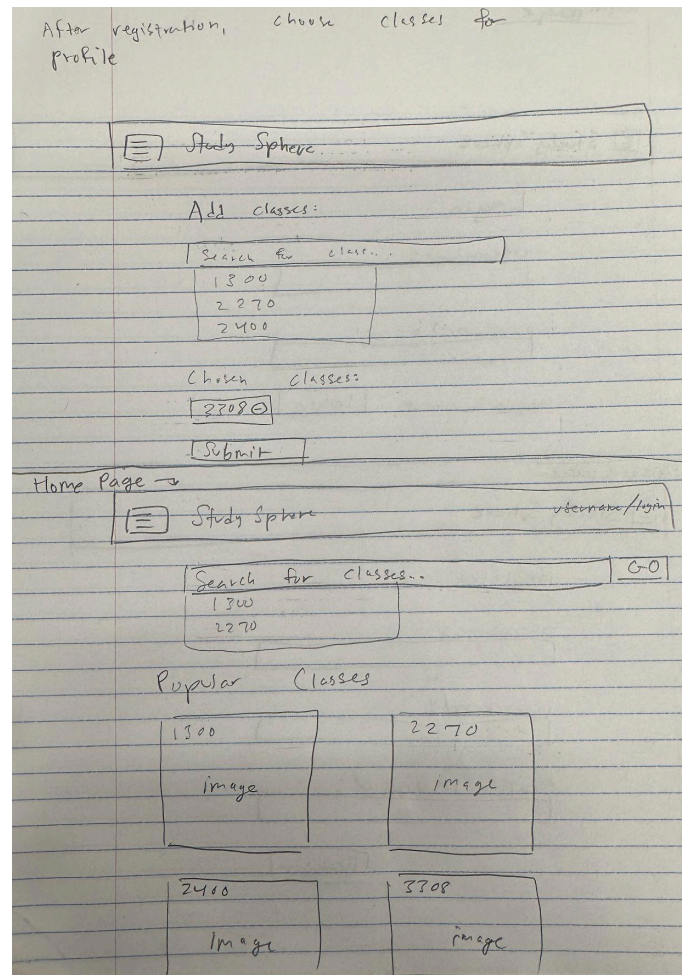 After registration, choose classes for
profile
Study Sphere
Add classes:
Search for class...
1300
2270
2400
Chosen classes:
3308
Submit
Home Page →
Study Sphere username/login
Search for classes... GO
1300
2270
Popular Classes
1300 2270
image image
2400 3308
Image image